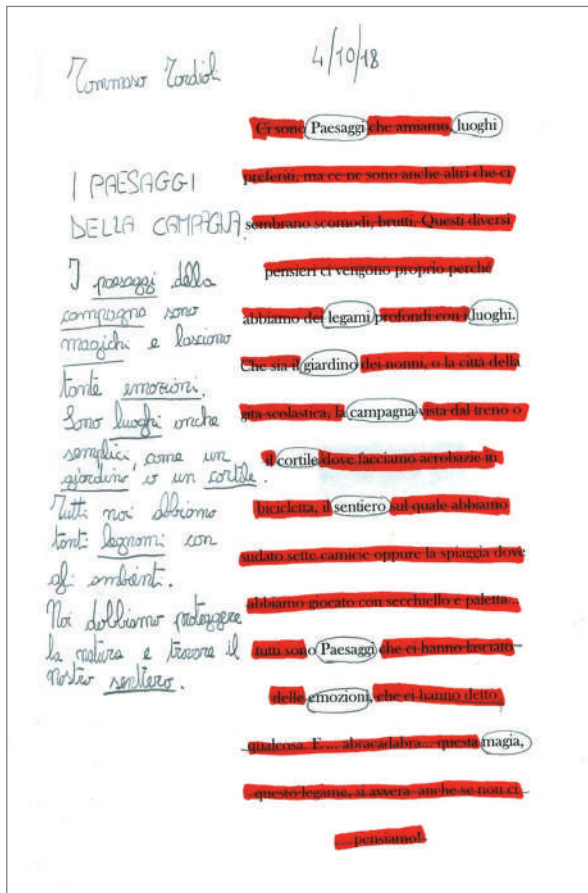 Tommaso Tordioli
4/10/18
I PAESAGGI
DELLA CAMPAGNA.
I paesaggi della
campagna sono
magichi e lasciono
tante emozioni.
Sono luoghi anche
semplici, come un
giardino o un cortile.
Tutti noi abbiamo
tanti legnami con
gli ambienti.
Noi dobbiamo proteggere
la natura e trovare il
nostro sentiero.
Ci sono Paesaggi che amiamo, luoghi
preferiti, ma ce ne sono anche altri che ci
sembrano scomodi, brutti. Questi diversi
pensieri ci vengono proprio perché
abbiamo dei legami profondi con i luoghi.
Che sia il giardino dei nonni, o la città della
gita scolastica, la campagna vista dal treno o
il cortile dove facciamo aerobazie in
bicicletta, il sentiero sul quale abbiamo
sudato sette camicie oppure la spiaggia dove
abbiamo giocato con secchiello e paletta...
tutti sono Paesaggi che ci hanno lasciato
delle emozioni, che ci hanno detto
qualcosa. E ... abracadabra... questa magia,
questo legame, si avvera anche se non ci
pensiamo!